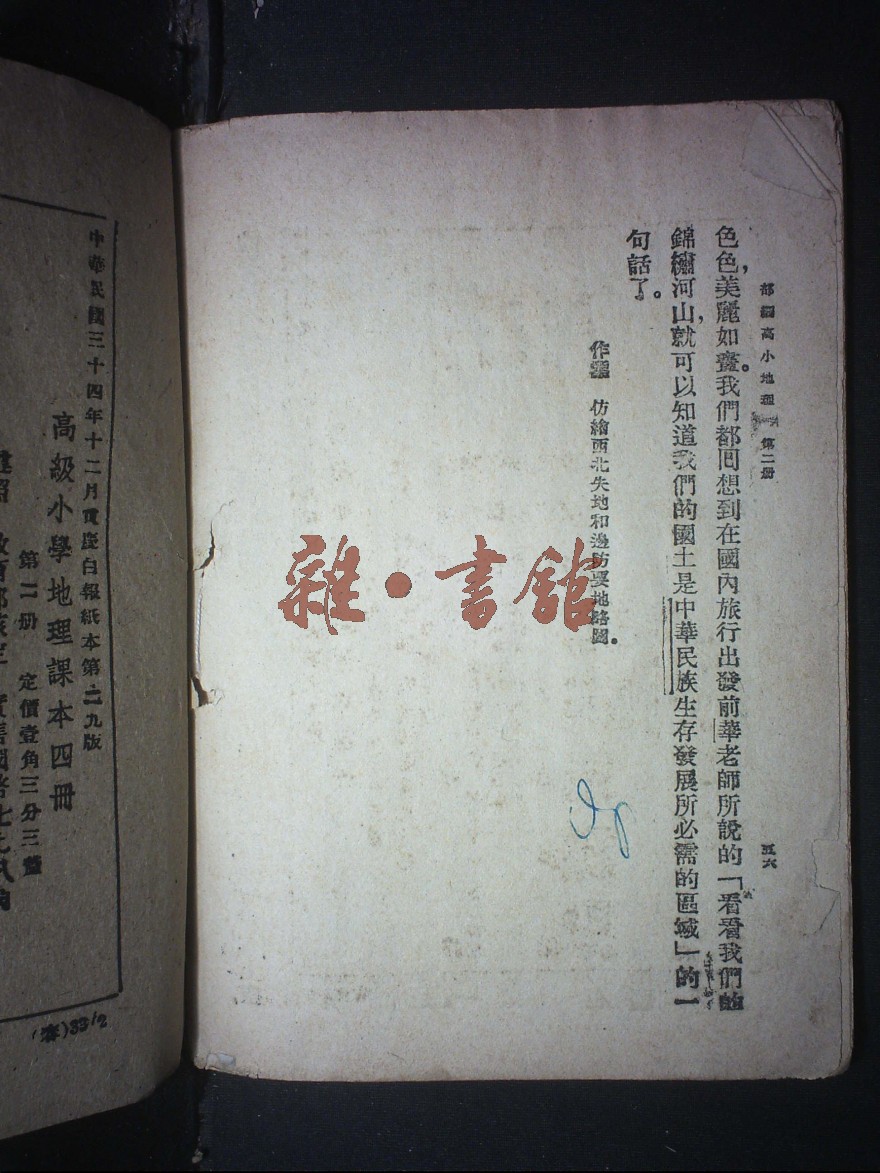 部編高小地理 第二册
五六
色色，美麗如畫。我們都回想到在國內旅行出發前華老師所說的「看看我們的
錦繡河山，就可以知道我們的國土是中華民族生存發展所必需的區域」的一
句話了。
作業 仿繪西北失地和邊防要地略圖。
雜·書館
中華民國三十四年十二月重慶白報紙本第二九版
高級小學地理課本四冊
第二册 定價壹角三分三釐
(春)33/2